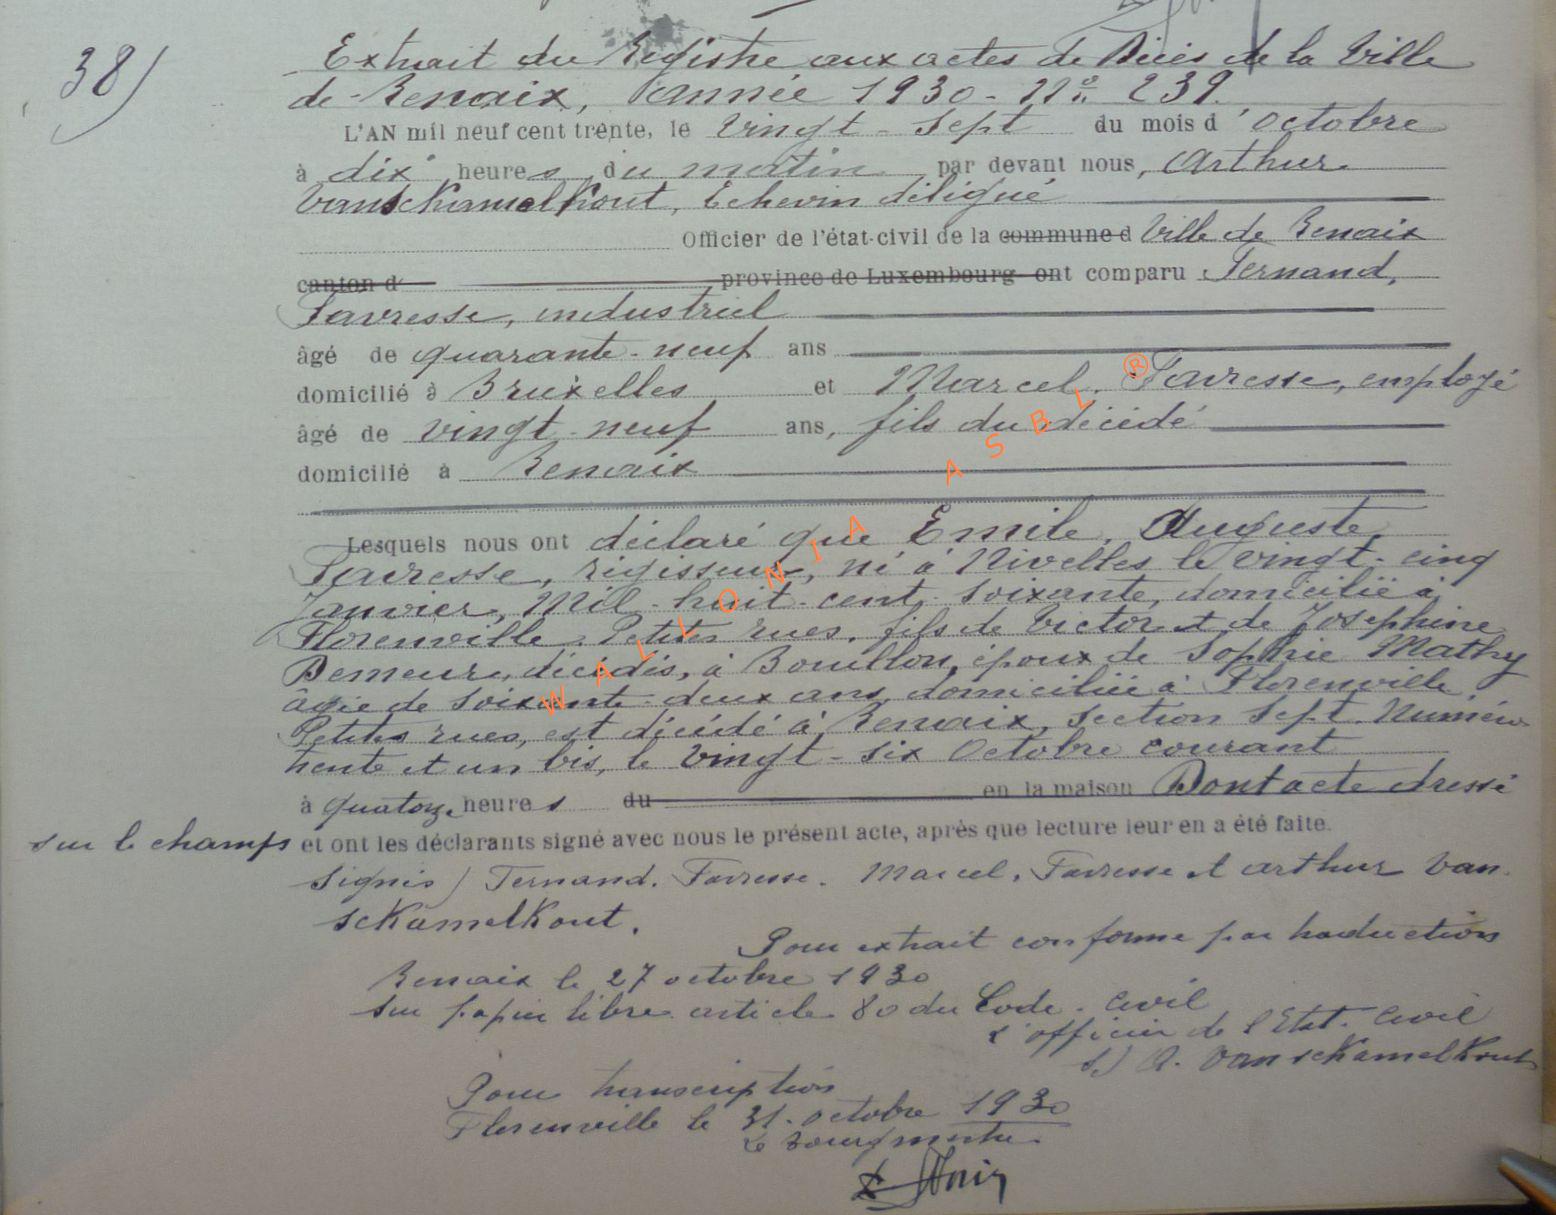 38)
Extrait du Registre aux actes de Décès de la Ville
de Renaix, année 1930 - N° 239.
L'AN mil neuf cent trente, le vingt-sept du mois d'octobre
à dix heures du matin par devant nous, Arthur
Vanschamelhout, Echevin délégué
Officier de l'état-civil de la commune d Ville de Renaix
canton d province de Luxembourg ont comparu Fernand,
Favresse, industriel
âgé de quarante-neuf ans
domicilié à Bruxelles et Marcel, Favresse, employé
âgé de vingt-neuf ans, fils du décédé
domicilié à Renaix
Lesquels nous ont déclaré que Emile, Auguste,
Favresse, régisseur, né à Nivelles le vingt-cinq
Janvier, Mil-huit-cent-soixante, domicilié à
Florenville, Petites rues, fils de Victor et de Joséphine
Demeur, décédés, à Bouillon, époux de Sophie Mathy
âgée de soixante-deux ans, domiciliée à Florenville,
Petites rues, est décédé à Renaix, section sept. Numéro
trente et un bis, le vingt-six Octobre courant
à quatorze heures du en la maison Dont acte dressé
sur le champs et ont les déclarants signé avec nous le présent acte, après que lecture leur en a été faite.
signés) Fernand. Favresse. Marcel, Favresse et arthur Van-
schamelhout.
Pour extrait conforme par traduction
Renaix le 27 octobre 1930
sur papier libre article 80 du Code-civil
l'officier de l'Etat-Civil
s.) A. Vanschamelhout
Pour transcription
Florenville le 31-octobre 1930
Le Bourgmestre.
WALLONIA ASBL ®